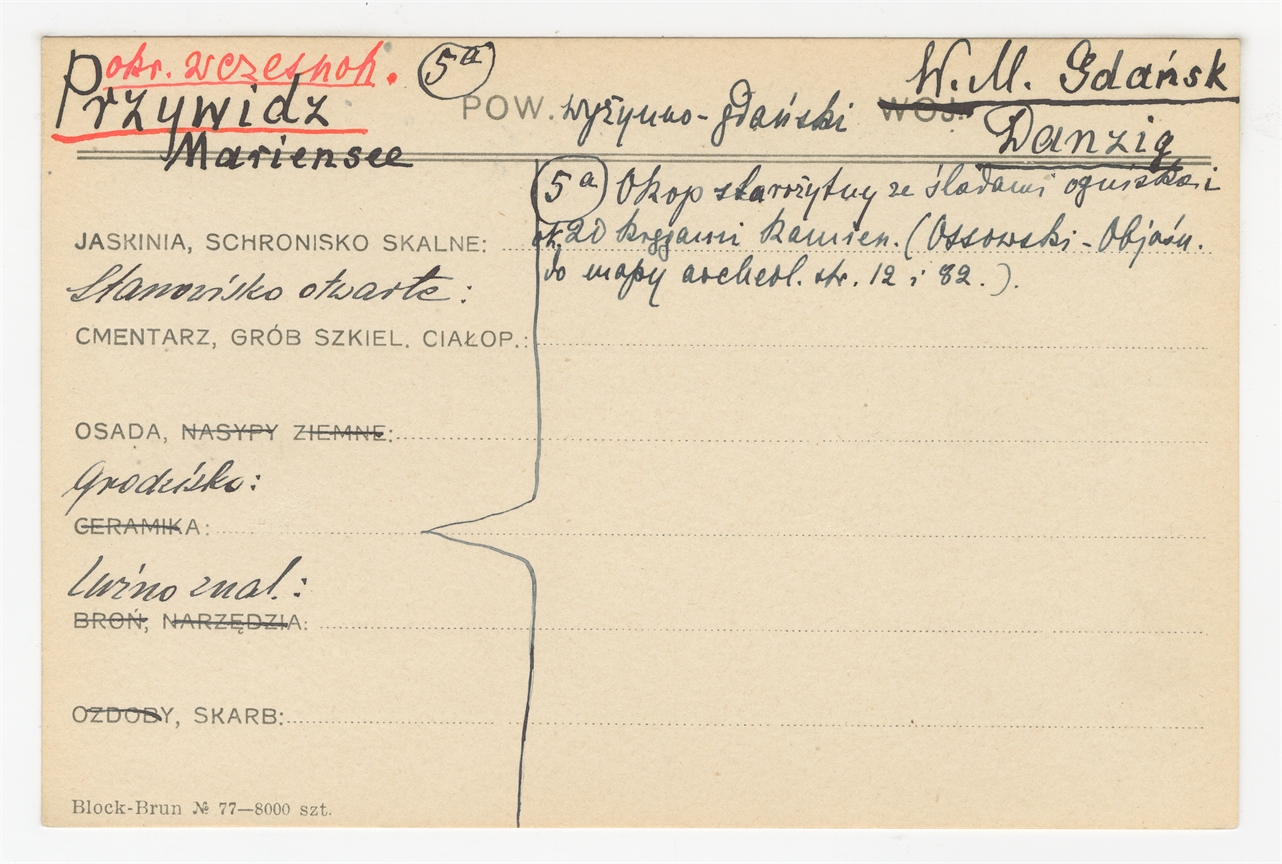 okr. wczesnoh. 5a W. M. Gdańsk
Przywidz POW. wyżynno-gdański WOJ.
Mariensee Danzig
5a Okop starożytny ze śladami ogniska i
ok. 20 kręgami kamien. (Ossowski - Objaśn.
do mapy archeol. str. 12 i 82.).
JASKINIA, SCHRONISKO SKALNE:
Stanowisko otwarte:
CMENTARZ, GRÓB SZKIEL. CIAŁOP.:
OSADA, NASYPY ZIEMNE:
Grodzisko:
CERAMIKA:
Luźno znal.:
BROŃ, NARZĘDZIA:
OZDOBY, SKARB:
Block-Brun № 77—8000 szt.